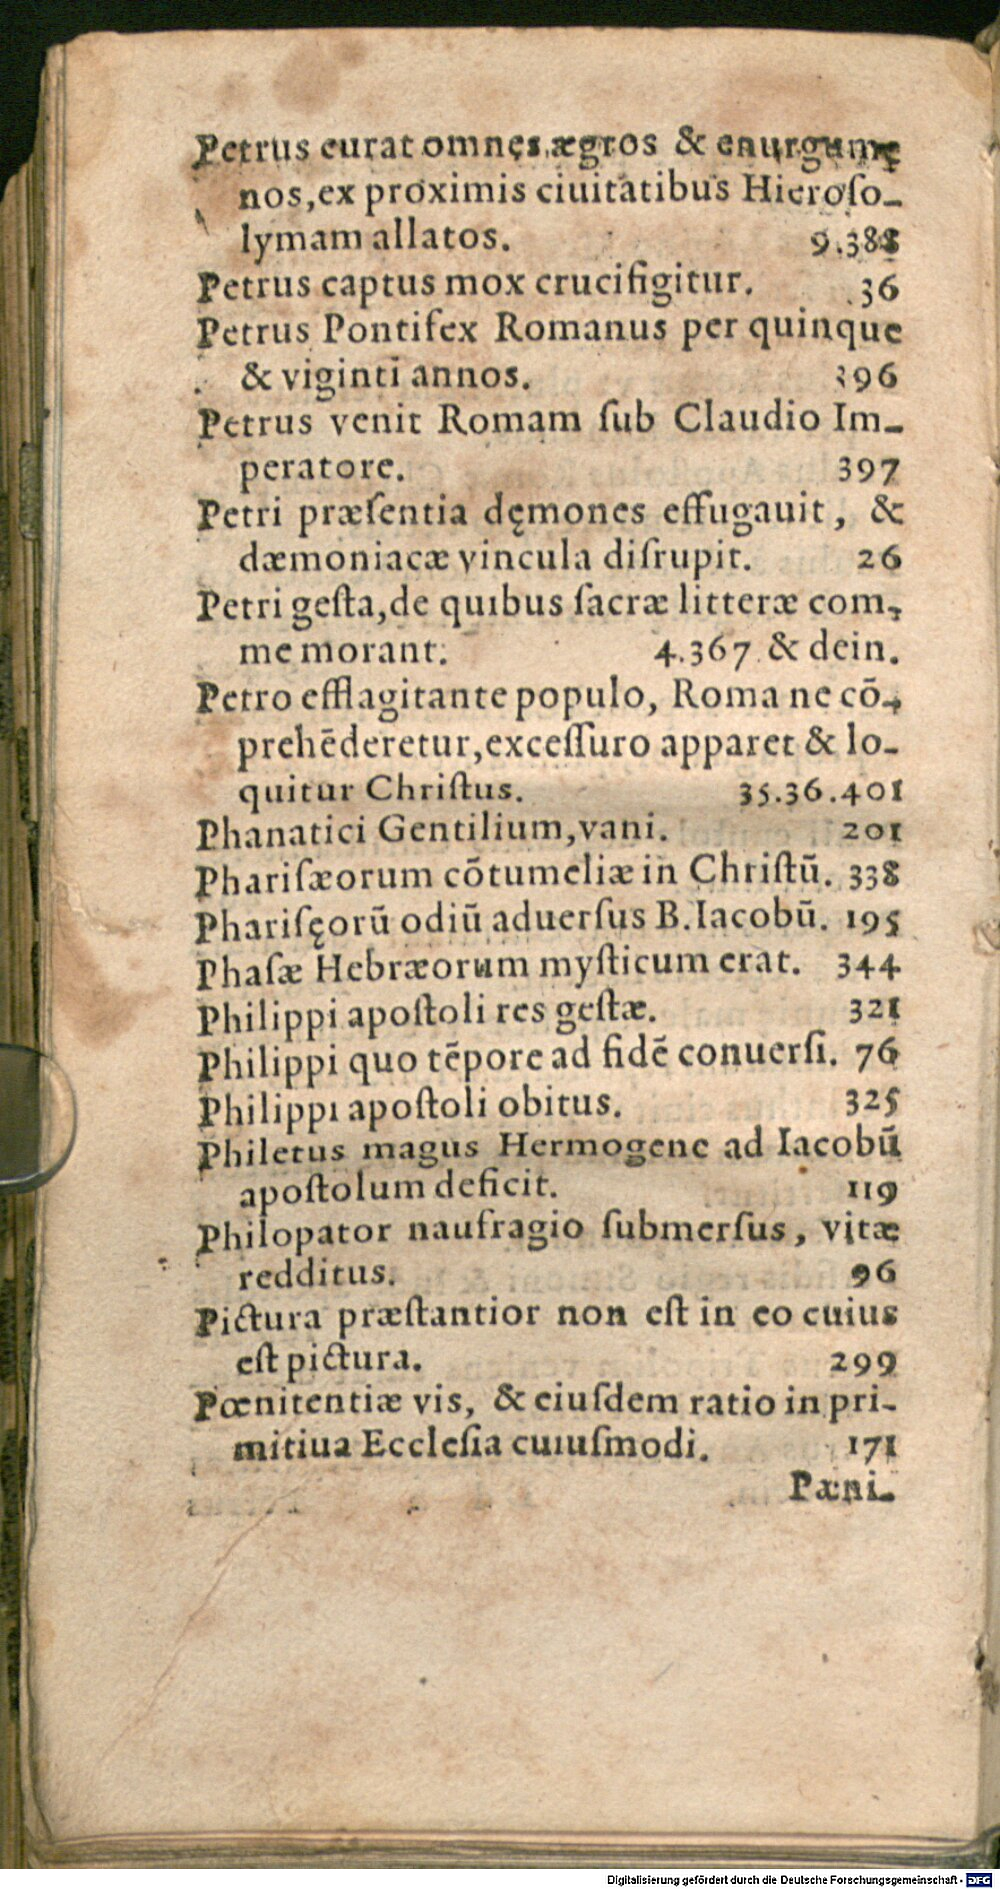 Petrus curat omnes ægros & enurgumę
nos, ex proximis ciuitatibus Hieroſo-
lymam allatos. 9.388
Petrus captus mox crucifigitur. 36
Petrus Pontifex Romanus per quinque
& viginti annos. 396
Petrus venit Romam ſub Claudio Im-
peratore. 397
Petri præſentia dęmones effugauit, &
dæmoniacæ vincula diſrupit. 26
Petri geſta, de quibus ſacræ litteræ com-
memorant. 4.367. & dein.
Petro efflagitante populo, Roma ne cō-
prehēderetur, exceſſuro apparet & lo-
quitur Chriſtus. 35.36.401
Phanatici Gentilium, vani. 201
Phariſæorum cōtumeliæ in Chriſtū. 338
Phariſęorū odiū aduerſus B. Iacobū. 195
Phaſæ Hebræorum myſticum erat. 344
Philippi apoſtoli res geſtæ. 321
Philippi quo tēpore ad fidē conuerſi. 76
Philippi apoſtoli obitus. 325
Philetus magus Hermogene ad Iacobū
apoſtolum deficit. 119
Philopator naufragio ſubmerſus, vitæ
redditus. 96
Pictura præſtantior non eſt in eo cuius
eſt pictura. 299
Pœnitentiæ vis, & eiuſdem ratio in pri-
mitiua Eccleſia cuiuſmodi. 171
Pæni-
Digitalisierung gefördert durch die Deutsche Forschungsgemeinschaft - DFG